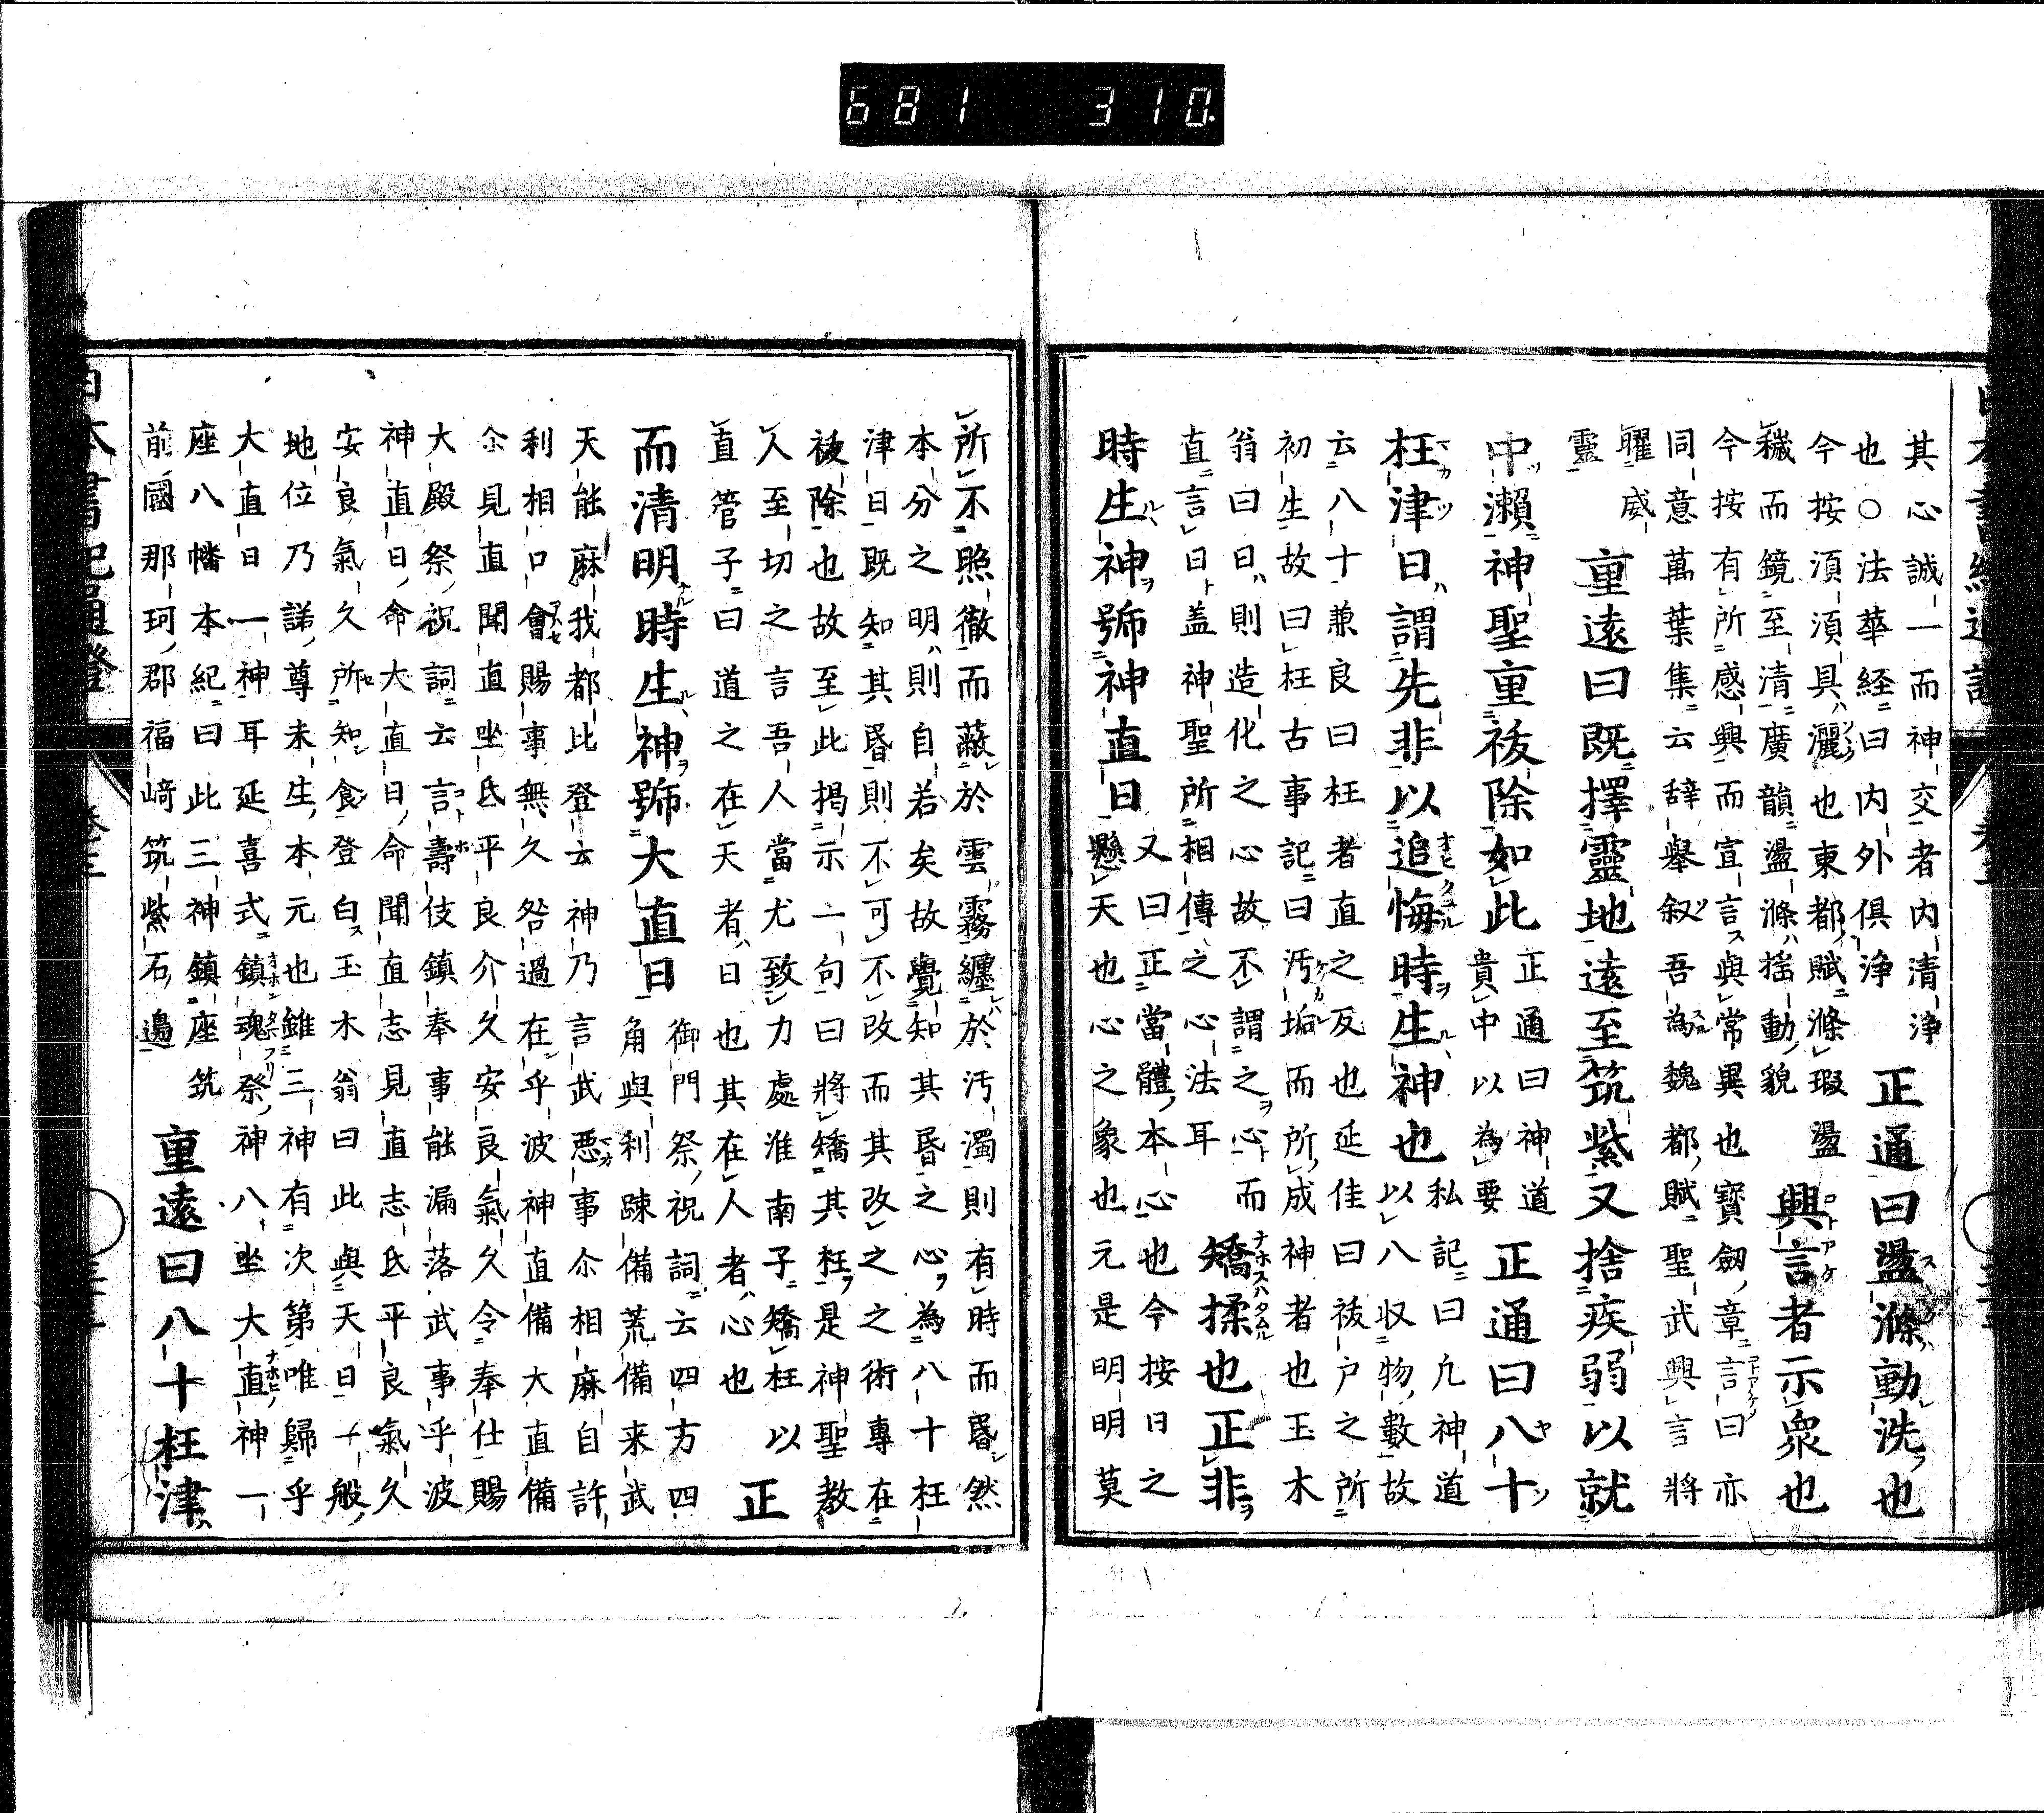 681 310
其心誠一而神交者内清浄
也○法華経曰内外倶浄
正通曰盪滌動洗也
今按湏湏具灑也東都賦滌瑕盪
穢而鏡至清廣韻盪滌揺動貌
興言者示衆也
今按有所感興而宣言與常異也寳劔章言曰亦
同意萬葉集云辞舉叙吾為魏都賦聖武興言將
曜威
靈
重遠曰既擇靈地遠至筑紫又捨疾弱以就
中瀬神聖重祓除如此
正通曰神道
貴中以為要
正通曰八十
枉津日謂先非以追悔時生神也
私記曰凢神道
以八収物數故
云八十兼良曰枉者直之反也延佳曰祓戸之所
初生故曰枉古事記曰汚垢而所成神者也玉木
翁曰日則造化之心故不謂之心而
直言日盖神聖所相傳之心法耳
矯揉也正非
時生神號神直日
又曰正當體本心也今按日之
懸天也心之象也元是明明莫
所不照徹而蔽於雲霧纏於汚濁則有時而昬然
本分之明則自若矣故覺知其昬之心為八十枉
津日既知其昬則不可不改而其改之之術專在
祓除也故至此揭示一句曰將矯其枉是神聖教
人至切之言吾人當尤致力處淮南子矯枉以
直管子曰道之在天者日也其在人者心也
正
而清明時生神號大直日
御門祭祝詞云四方四
角與利踈備荒備来武
天能麻我都比登云神乃言武悪事尒相麻自許
利相口會賜事無久咎過在乎波神直備大直備
尒見直聞直坐氐平良介久安良氣久令奉仕賜
大殿祭祝詞云言壽伎鎮奉事能漏落武事乎波
神直日命大直日命聞直志見直志氐平良氣久
安良氣久所知食登白玉木翁曰此與天日一般
地位乃諾尊未生本元也錐三神有次第唯歸乎
大直日一神耳延喜式鎮魂祭神八坐大直神一
座八幡本紀曰此三神鎮座筑
前國那珂郡福﨑筑紫石邉
重遠曰八十枉津